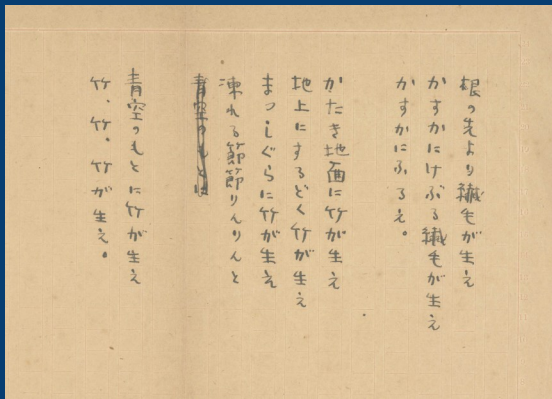 根の先より纎毛が生え
かすかにけぶる纎毛が生え
かすかにふるえ。
かたき地面に竹が生え
地上にするどく竹が生え
まつしぐらに竹が生え
凍れる節節りんりんと
青空のもとは
青空のもとに竹が生え
竹、竹、竹が生え。